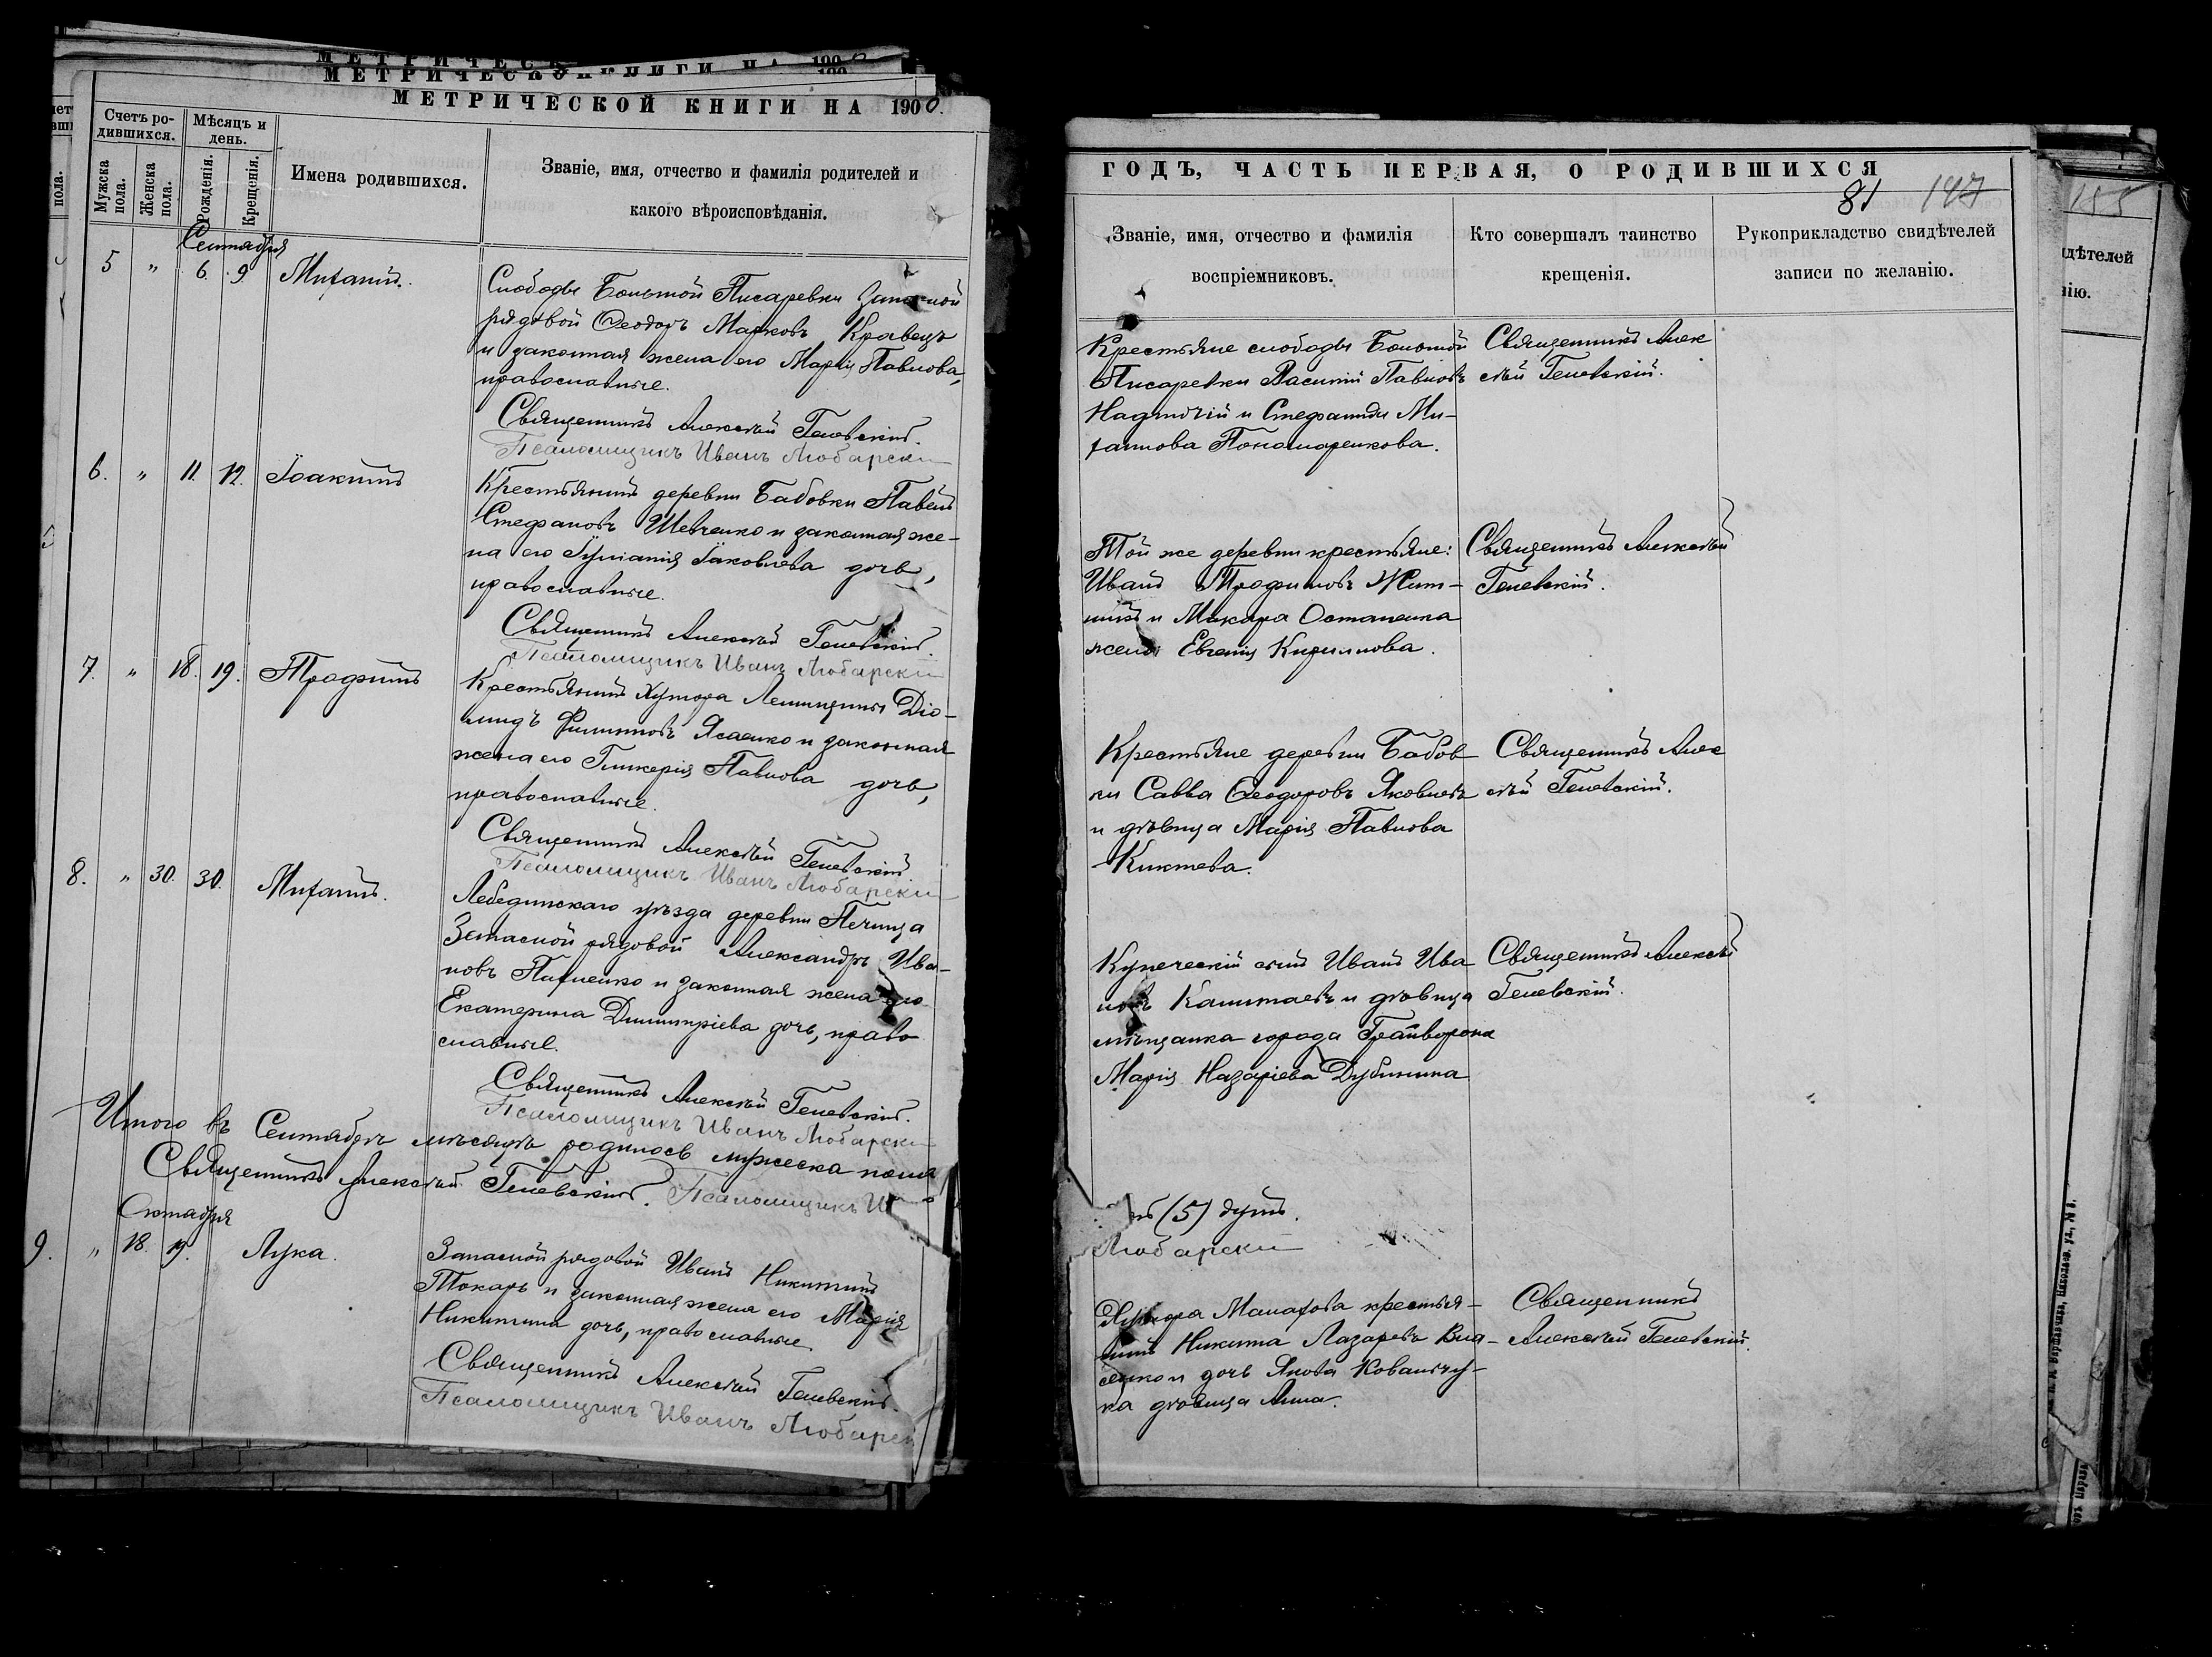 МЕТРИЧЕСКОЙ КНИГИ НА 1900.
Счетъ ро-
дившихся.
Мѣсяцъ и
день.
Мужска
пола.
Женска
пола.
Рожденія.
Крещенія.
Имена родившихся.
Званіе, имя, отчество и фамилія родителей и
какого вѣроисповѣданія.
Сентября
5 " 6. 9. Михаилъ.
Слободы Большой Писаревки Запасной
рядовой Ѳеодоръ Марковъ Кравецъ
и законная жена его Марія Павлова,
православные.
Священникъ Алексѣй
Псаломщикъ Иванъ Любарски
6. " 11. 12. Іоакимъ
Крестьянинъ деревни Бабовки Павелъ
Стефановъ Шевченко и законная же-
на его Іуліанія Іаковлева дочь,
православные.
Священникъ Алексѣй
Псаломщикъ Иванъ Любарски
7. " 18. 19. Трофимъ
Крестьянинъ Хутора Лемищины Діо-
мидъ Филиповъ и законная
жена его Гликерія Павлова дочь,
православные.
Священникъ Алексѣй
Псаломщикъ Иванъ Любарски
8. " 30. 30. Михаилъ.
Лебединскаго уѣзда деревни
рядовой Александръ Ива-
новъ и законная жена его
Екатерина Димитріева дочь, право
славные.
Священникъ Алексѣй
Псаломщикъ Иванъ Любарски
Итого въ Сентябрѣ мѣсяцѣ родилось мужеска пола
Священникъ Алексѣй Псаломщикъ
Октября
9. " 18. 19. Лука.
Запасной рядовой Иванъ Никитинъ
Токарь и законная жена его Марія
Никитина дочь, православные.
Священникъ Алексѣй
Псаломщикъ Иванъ Любарск
ГОДЪ, ЧАСТЬ ПЕРВАЯ, О РОДИВШИХСЯ
81 147
Званіе, имя, отчество и фамилія
воспріемниковъ.
Кто совершалъ таинство
крещенія.
Рукоприкладство свидѣтелей
записи по желанію.
Крестьяне слободы Большой
Писаревки Василій Павловъ
Надточій и Стефанида Ми-
хаилова Пономаренкова.
Священникъ Алек
сѣй
Той же деревни крестьяне:
Иванъ Трофимовъ Жит-
никъ и Макара Остапенка
жена Евгенія Кирилова.
Священникъ Алексѣй
Крестьяне деревни Бабов
ки Савва Ѳеодоровъ Яковлевъ
и дѣвица Марія Павлова
Киктева.
Священникъ Алек
сѣй
Купеческій сынъ Иванъ Ива
новъ Капитаевъ и дѣвица
мѣщанка города Грайворона
Марія Назаріева Дубинина
Священникъ Алексѣй
(5) душъ.
Любарски
Хутора Малахова крестья-
нинъ Никита Лазаревъ Вла-
сенко и дочь Якова Ковальчу-
ка дѣвица Анна.
Священникъ
Алексѣй
155